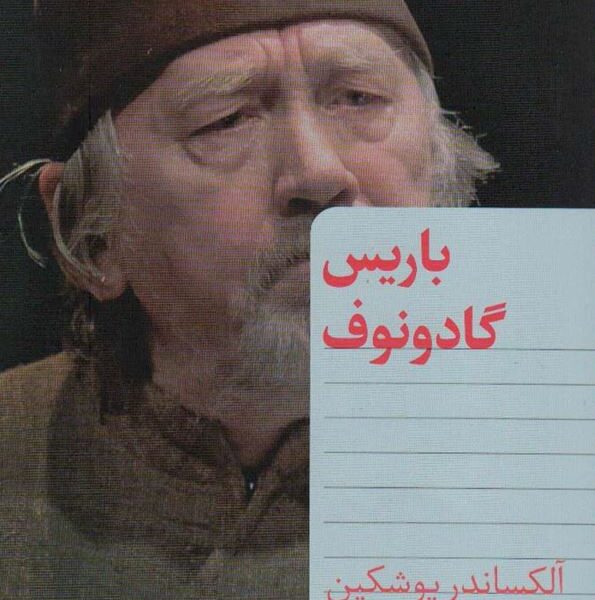 باریس
گادونوف
آلکساندر پوشکین